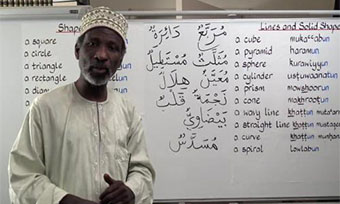 Shape
a square
a circle
a triangle
a rectangle
a diam
مُرَبَّعٌ دَائِرَةٌ
مُثَلَّثٌ مُسْتَطِيلٌ
مُعَيَّنٌ هِلَالٌ
نَجْمَةٌ قَلْبٌ
بَيْضَاوِيٌّ
مُسَدَّسٌ
Lines and Solid Shape
a cube mukaᶜᶜabun
a pyramid haramun
a sphere kurawiyyun
a cylinder ustuwaanatun
a prism mowshoorun
a cone makhrootun
a wavy line khattun
a straight line khattun
a curve khattun
a spiral lawlabun